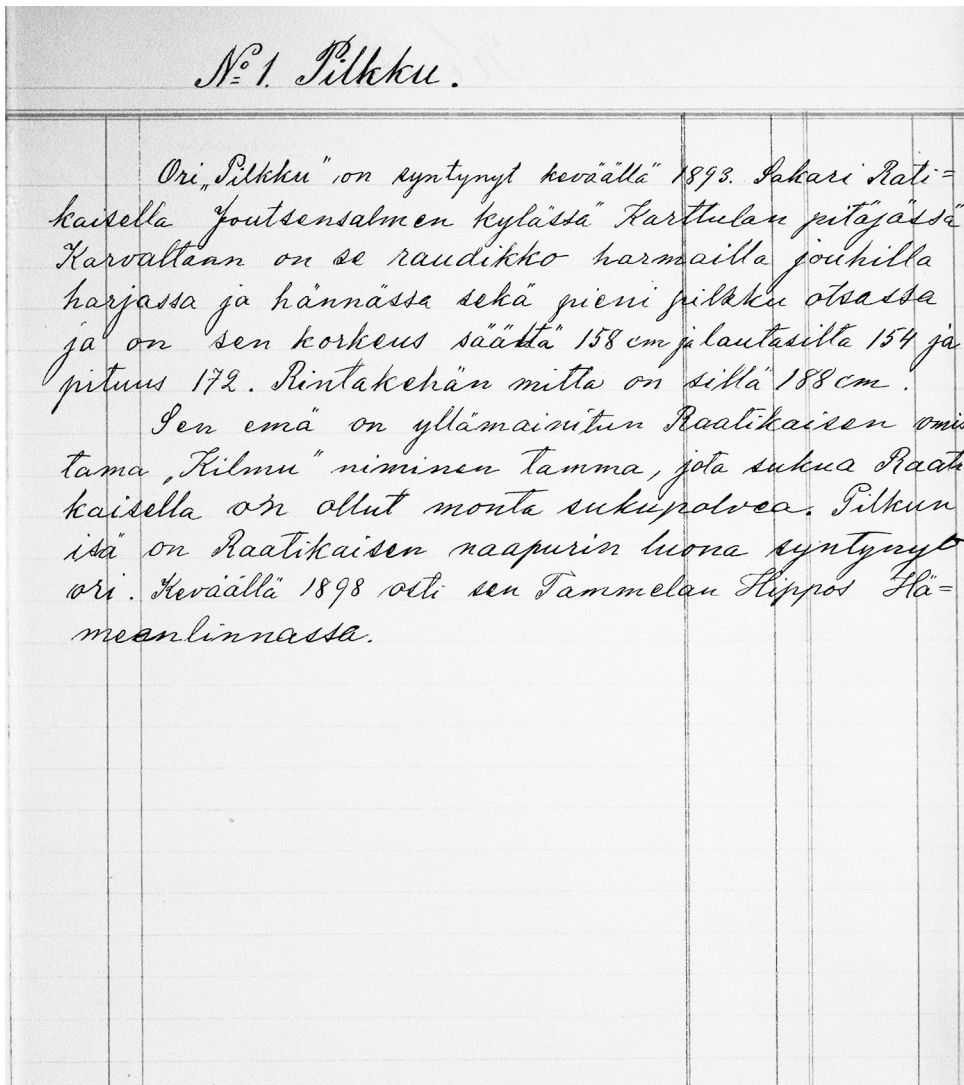 No 1. Pilkku.
Ori „Pilkku" on syntynyt keväällä 1893. Sakari Rati=
kaisella Joutsensalmen kylässä Karttulan pitäjässä
Karvaltaan on se raudikko harmailla jouhilla
harjassa ja hännässä sekä pieni pilkku otsassa
ja on sen korkeus säästä 158 cm ja lautasilta 154 ja
pituus 172. Rintakehän mitta on sillä 188 cm.
Sen emä on yllämainitun Raatikaisen omis
tama „Kilmu" niminen tamma, jota sukua Raati
kaisella on ollut monta sukupolvea. Pilkun
isä on Raatikaisen naapurin luona syntynyt
ori. Keväällä 1898 osti sen Tammelan Hippos Hä=
meenlinnassa.